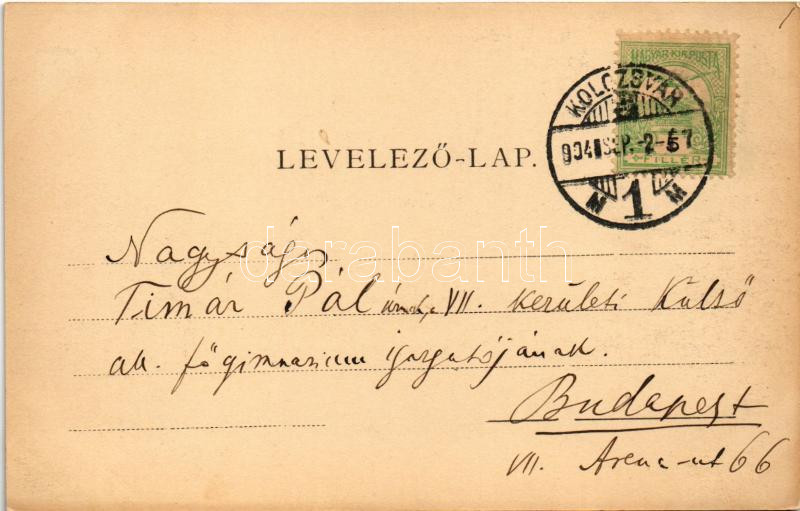 MAGYAR KIR. POSTA
FILLÉR
KOLOZSVÁR
904 SEP. -2
1
M M
LEVELEZŐ-LAP.
darabanth
Nagyságos
Timár Pál úrnak, VII. kerületi Külső
áll. főgimnazium igazgatójának.
Budapest
VII. Arena-ut 66